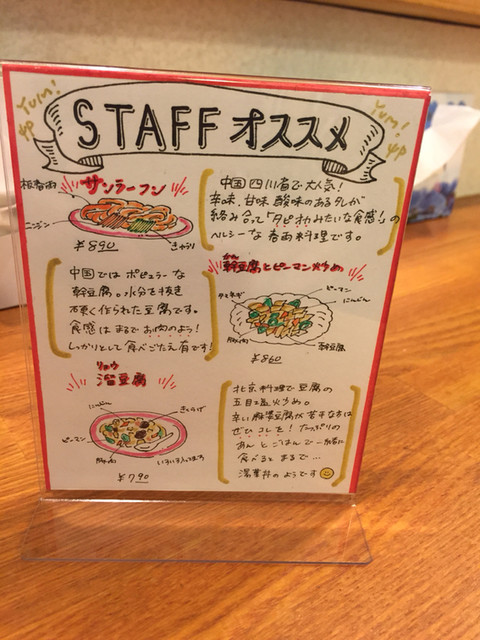 Yum!
Yum!
STAFF オススメ
板春雨
サンラーフン
ニンジン
きゅうり
¥890
中国四川省で大人気!
辛味、甘味、酸味のあるタレが
絡み合って「タピオカみたいな食感!」の
ヘルシーな春雨料理です。
中国ではポピュラーな
幹豆腐。水分を抜き
硬く作られた豆腐です。
食感はまるでお肉のよう!
しっかりとして食べごたえ有です!
かん
幹豆腐とピーマン炒め
タマネギ
ピーマン
にんじん
豚肉
幹豆腐
¥860
リュウ
溜豆腐
にんじん
きくらげ
ピーマン
豚肉
¥790
北京料理で豆腐の
五目塩炒め。
辛い麻婆豆腐が苦手な方は
ぜひコレを!たっぷりの
あんとごはんで一緒に
食べるとまるで…
湯葉丼のようです